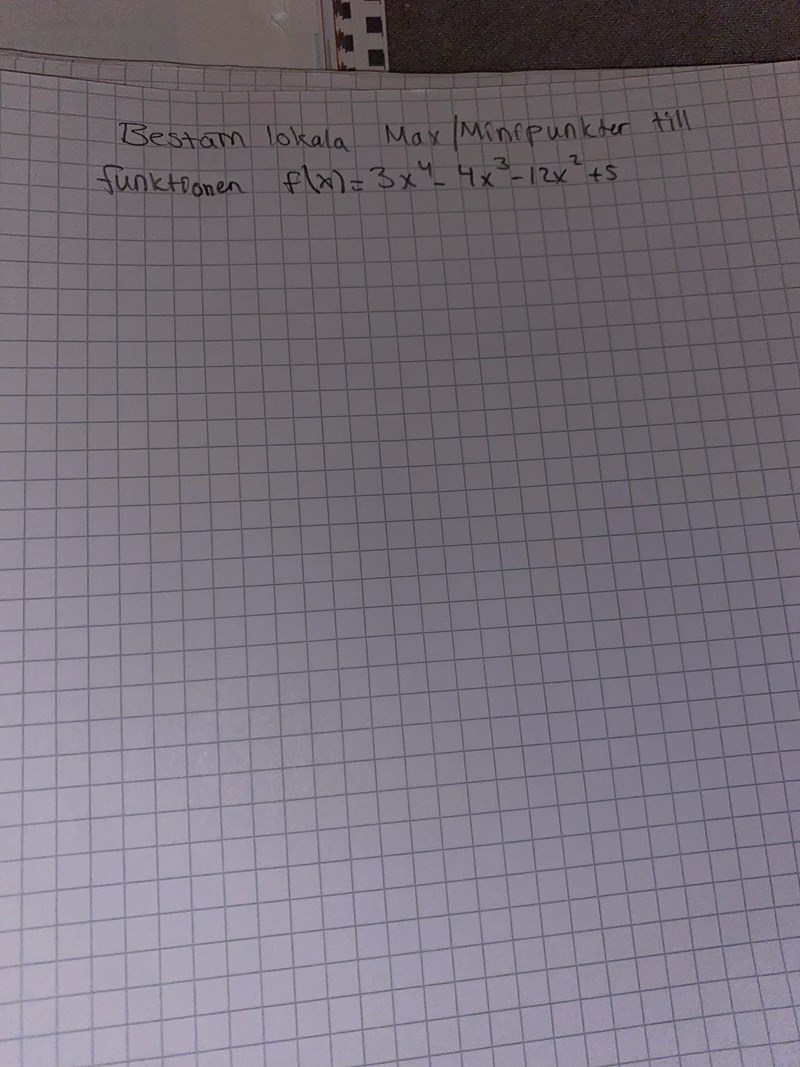 Bestäm lokala Max/Minipunkter till
funktionen f(x) = 3x⁴ - 4x³ - 12x² + 5